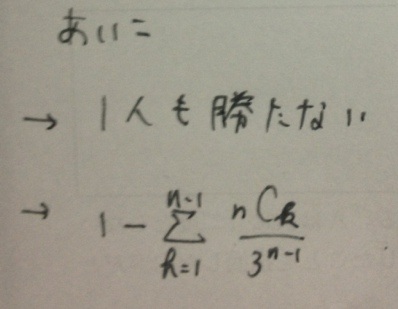 あいこ
→ 1人も勝たない
→ 1 - \sum_{k=1}^{n-1} \frac{nCk}{3^{n-1}}